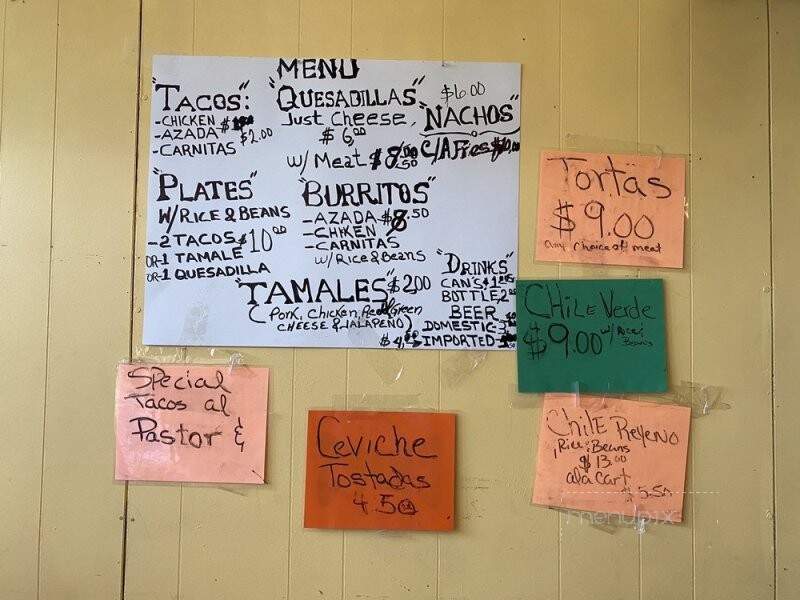 MENU
"TACOS":
-CHICKEN
-AZADA $2.00
-CARNITAS
"QUESADILLAS"
Just Cheese,
$6.00
w/ Meat $8.50
$6.00
"NACHOS"
C/A Fries
"PLATES"
W/RICE & BEANS
-2 TACOS $10.00
OR-1 TAMALE
OR-1 QUESADILLA
"BURRITOS"
-AZADA $8.50
-CHICKEN
-CARNITAS
w/Rice & Beans
"TAMALES" $2.00
(Pork, Chicken, Red/Green
CHEESE & JALAPEÑO)
"DRINKS"
CAN'S
BOTTLE
BEER
DOMESTIC-
IMPORTED-
Tortas
$9.00
any choice of meat
CHiLE Verde
$9.00 w/Rice &
Beans
Special
Tacos al
Pastor &
Ceviche
Tostadas
4.50
CHiLE Reyeno
Rice & Beans
$13.00
ala Cart
$5.50
menupix